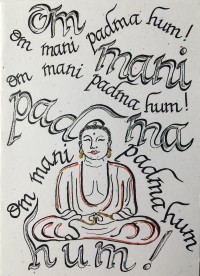 Om
Om mani padma hum!
mani
Om mani padma hum!
padma
Om mani padma hum
hum!